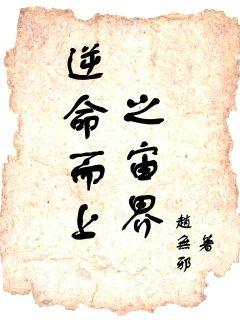 逆命而上
之宙界
趙無邪
著